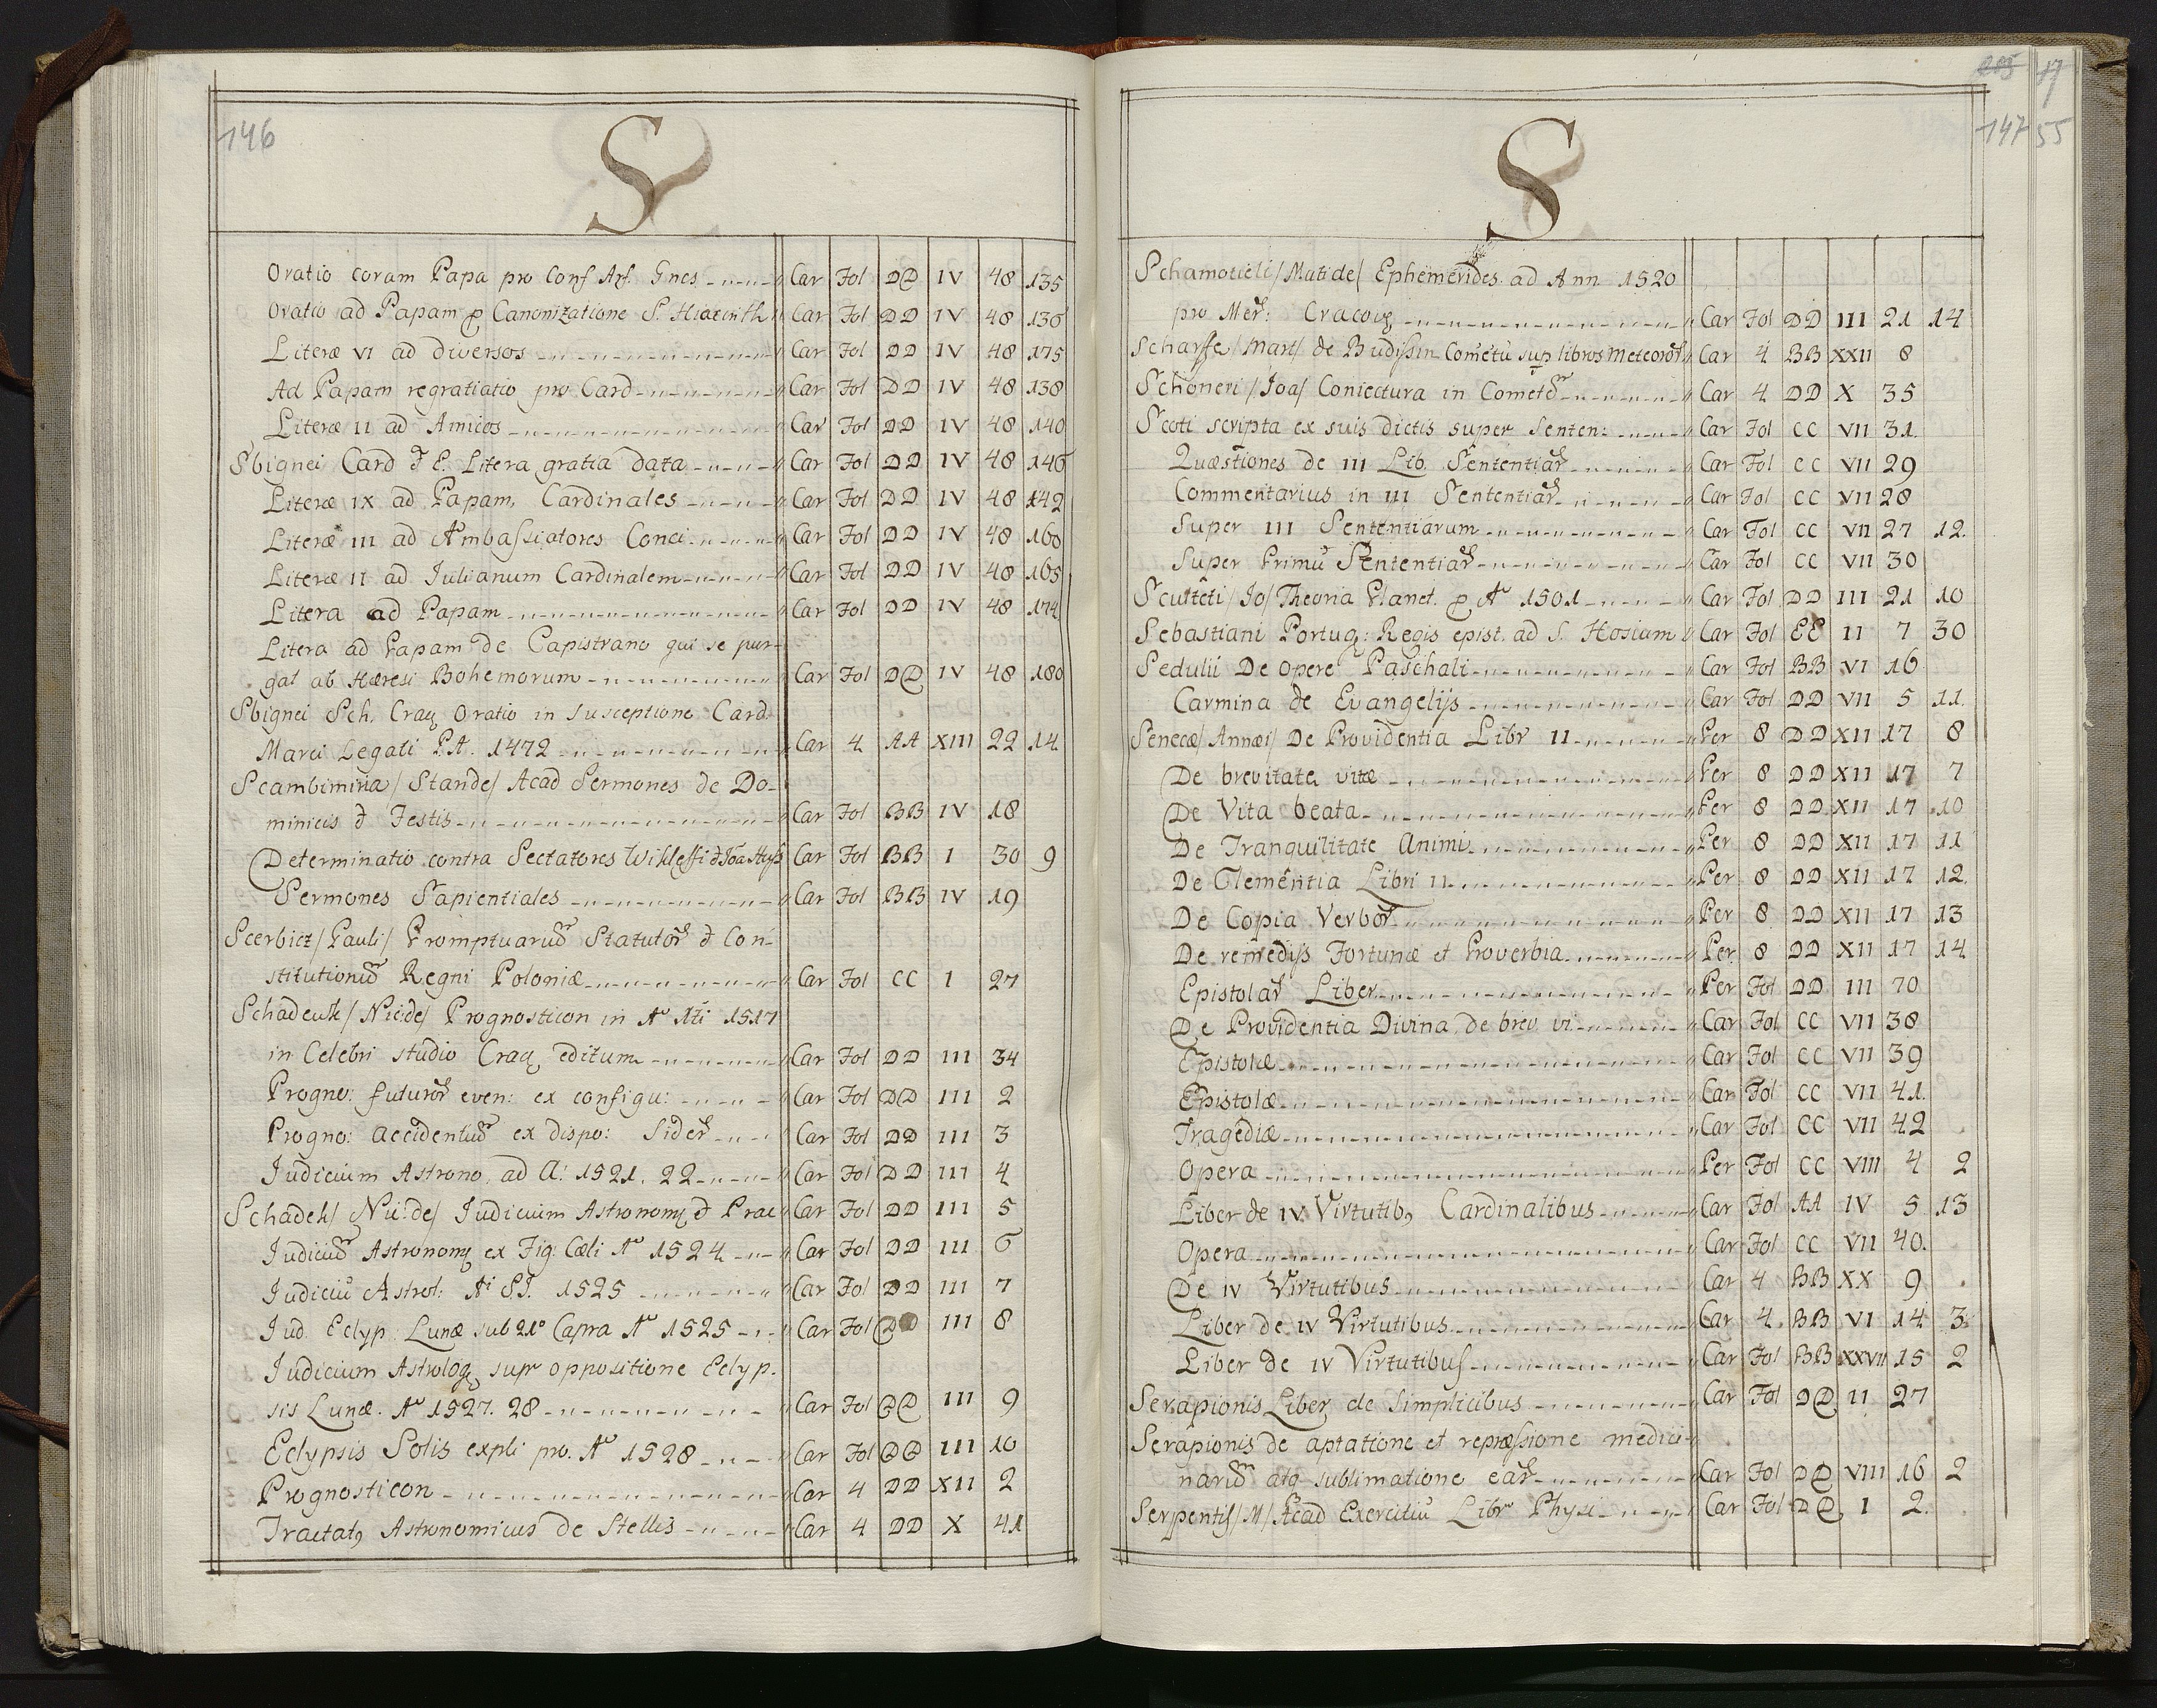 146
S
Oratio coram Papa pro Conf Arf. Gnes Car Fol DD IV 48 135
Oratio ad Papam p Canonizatione S. Hiacinth Car Fol DD IV 48 136
Literæ VI ad diversos Car Fol DD IV 48 175
Ad Papam regratiatio pro Card Car Fol DD IV 48 138
Literæ II ad Amicos Car Fol DD IV 48 140
Sbignei Card & E. Litera gratia data Car Fol DD IV 48 146
Literæ IX ad Papam, Cardinales Car Fol DD IV 48 142
Literæ III ad Ambassiatores Conci Car Fol DD IV 48 160
Literæ II ad Iulianum Cardinalem Car Fol DD IV 48 165
Litera ad Papam Car Fol DD IV 48 174
Litera ad Papam de Capistrano qui se pur-
gat ab Hæresi Bohemorum Car Fol DD IV 48 180
Sbignei Sch. Craq Oratio in susceptione Card
Marci Legati P.A. 1472 Car 4 AA XIII 22 14
Scambimiria/ Stande/ Acad Sermones de Do-
minicis & Festis Car Fol BB IV 18
Determinatio contra Sectatores Wikleffi & Joa Hyss Car Fol BB I 30 9
Sermones Sapientiales Car Fol BB IV 19
Scerbicz/ Pauli/ Promptuariu Statutor & Con-
stitutionu Regni Poloniæ Car Fol CC I 27
Schadeuk/ Nic:de/ Prognosticon in Ao 1517
in Celebri studio Craq editum Car Fol DD III 34
Progno: futuror even: ex configu: Car Fol DD III 2
Progno: accidentiu ex dispo: Sider Car Fol DD III 3
Iudicium Astrono, ad A: 1521. 22 Car Fol DD III 4
Schadek/ Nic:de/ Iudicium Astronomq & Prac Car Fol DD III 5
Iudiciu Astronomq ex Fig: Cœli Ao 1524 Car Fol DD III 6
Iudiciu Astrol: Ai 1525 Car Fol DD III 7
Iud. Eclyp: Lunæ sub 21o Capra Ao 1525 Car Fol DD III 8
Iudicium Astrolog supr oppositione Eclyp-
sis Lunæ. Ao 1527. 28 Car Fol DD III 9
Eclypsis Solis expli pro. Ao 1528 Car Fol DD III 10
Prognosticon Car 4 DD XII 2
Tractatq Astronomicus de Stellis Car 4 DD X 41
17
147 55
S
Schamotieli/ Mati:de/ Ephemerides ad Ann 1520
pro Mer: Cracoviq Car Fol DD III 21 14
Scharffe/ Mart/ de Budissin Cometu sup libros Meteoror Car 4 BB XXII 8
Schöneri/ Joa/ Coniectura in Cometa Car 4 DD X 35
Scoti scripta ex suis dictis super Senten: Car Fol CC VII 31
Quæstiones de III Lib. Sententiar Car Fol CC VII 29
Commentarius in III Sententiar Car Fol CC VII 28
Super III Sententiarum Car Fol CC VII 27 12
Super Primu Sententiar Car Fol CC VII 30
Sculteti/ Jo/ Theoria Planet. p Ao 1501 Car Fol DD III 21 10
Sebastiani Portug: Regis epist. ad S. Hosium Car Fol EE II 7 30
Sedulii De Opere Paschali Car Fol BB VI 16
Carmina de Evangelijs Car Fol DD VII 5 11
Senecæ/ Annæi/ De Providentia Libr II Per 8 DD XII 17 8
De brevitate vitæ Per 8 DD XII 17 7
De Vita beata Per 8 DD XII 17 10
De Tranquilitate Animi Per 8 DD XII 17 11
De Clementia Libri II Per 8 DD XII 17 12
De Copia Verbor Per 8 DD XII 17 13
De remedijs Fortunæ et Proverbia Per 8 DD XII 17 14
Epistolar Liber Per Fol DD III 70
De Providentia Divina, de brev. vi Car Fol CC VII 38
Epistolæ Car Fol CC VII 39
Epistolæ Car Fol CC VII 41
Tragediæ Car Fol CC VII 42
Opera Per Fol CC VIII 4 2
Liber de IV Virtutibq Cardinalibus Car Fol AA IV 5 13
Opera Car Fol CC VII 40
De IV Virtutibus Car 4 BB XX 9
Liber de IV Virtutibus Car 4 BB VI 14 3
Liber de IV Virtutibus Car Fol BB XXVII 15 2
Serapionis Liber de simplicibus Car Fol DD II 27
Serapionis de aptatione et repræssione medici-
nariu atq sublimatione ear Car Fol DD VIII 16 2
Serpentis/ M/ Acad Exercitiu Libr Physi Car Fol DD I 2